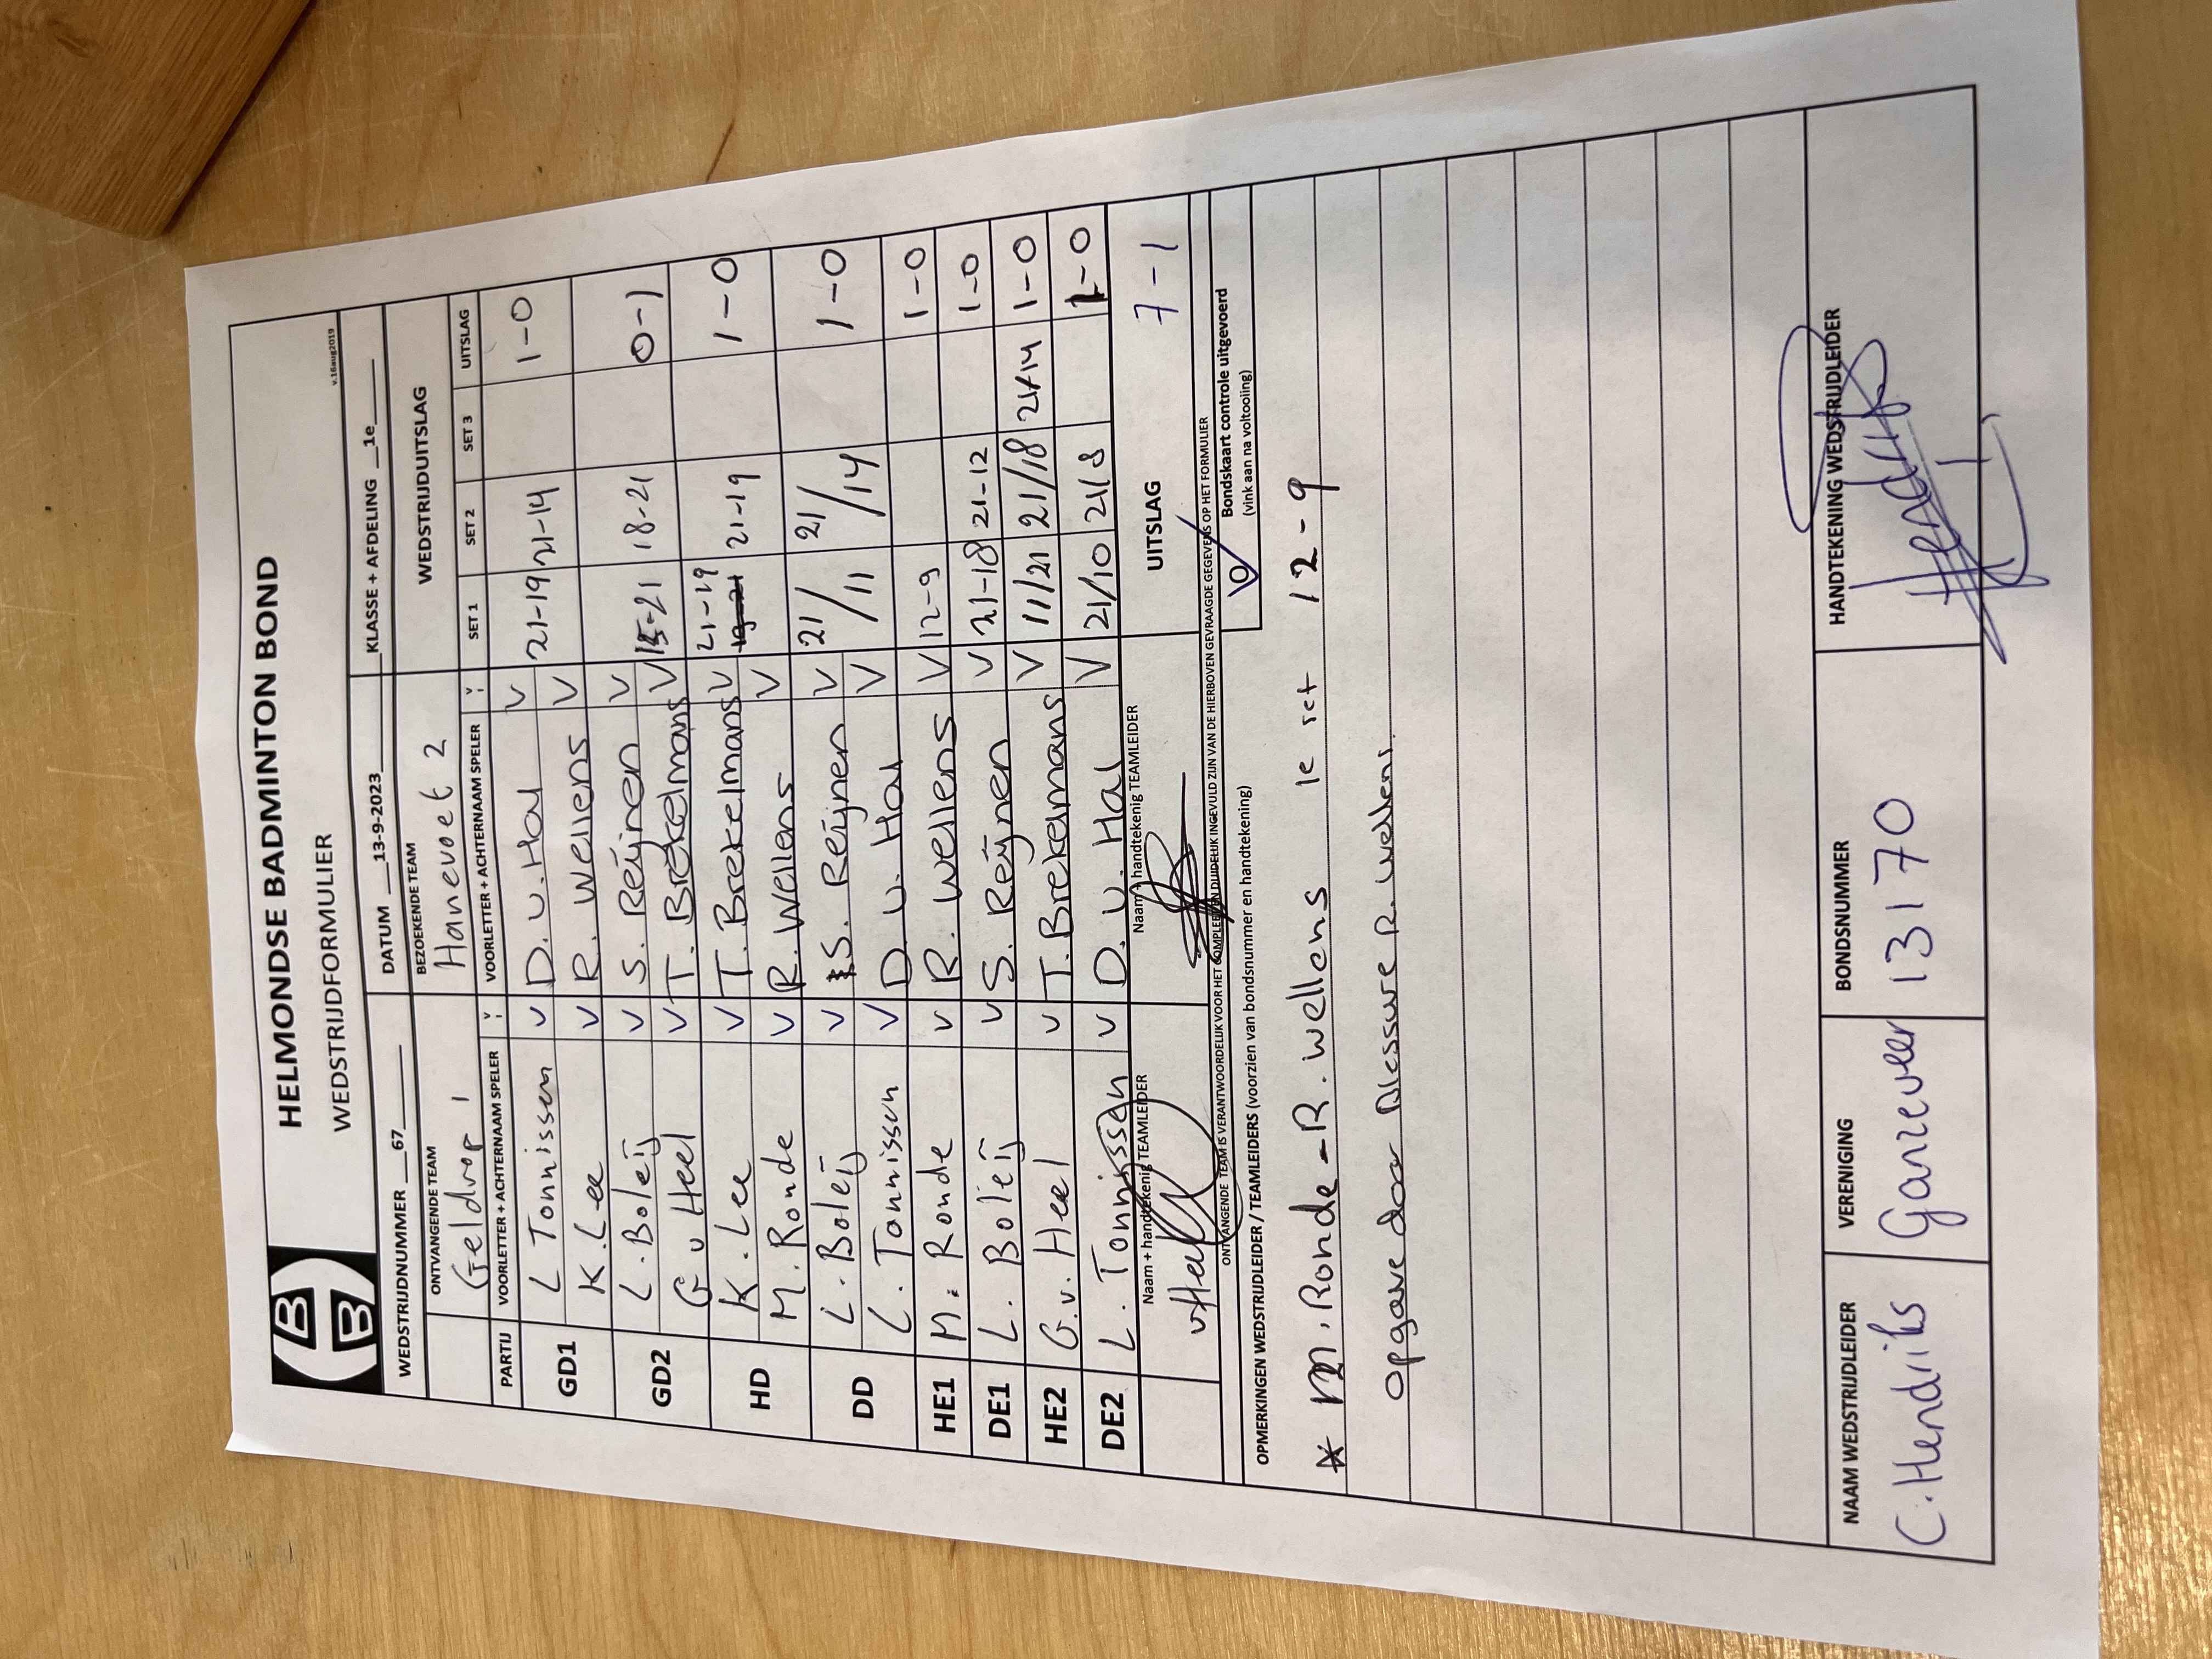 HELMONDSE BADMINTON BOND
WEDSTRIJDFORMULIER
v.16aug2019
WEDSTRIJDNUMMER __67__ DATUM __13-9-2023__ KLASSE + AFDELING __1e__
ONTVANGENDE TEAM BEZOEKENDE TEAM WEDSTRIJDUITSLAG
Geldrop 1 Hanevoet 2
PARTIJ VOORLETTER + ACHTERNAAM SPELER V VOORLETTER + ACHTERNAAM SPELER V SET 1 SET 2 SET 3 UITSLAG
GD1 L Tonnissen V D. v. Hal V 21-19 21-14 1-0
K. Lee V R. Wellens V
GD2 L. Boleij V S. Reijnen V 15-21 18-21 0-1
G v Heel V T. Brekelmans V
HD K. Lee V T. Brekelmans V 21-19 21-19 1-0
M. Ronde V R. Wellens V 19-21
DD L. Boleij V S. Reijnen V 21/11 21/14 1-0
L. Tonnissen V D. v. Hal V
HE1 M. Ronde V R. Wellens V 12-9 1-0
DE1 L. Boleij V S. Reijnen V 21-18 21-12 1-0
HE2 G. v. Heel V T. Brekelmans V 11/21 21/18 21/14 1-0
DE2 L. Tonnissen V D. v. Hal V 21/10 21/8 1-0
Naam + handtekenig TEAMLEIDER Naam + handtekenig TEAMLEIDER UITSLAG 7-1
vHeel
ONTVANGENDE TEAM IS VERANTWOORDELIJK VOOR HET COMPLEET EN DUIDELIJK INGEVULD ZIJN VAN DE HIERBOVEN GEVRAAGDE GEGEVENS OP HET FORMULIER
Bondskaart controle uitgevoerd
(vink aan na voltooiing)
OPMERKINGEN WEDSTRIJDLEIDER / TEAMLEIDERS (voorzien van bondsnummer en handtekening)
* M. Ronde - R. Wellens 1e set 12-9
opgave door blessure R. Wellens.
NAAM WEDSTRIJDLEIDER VERENIGING BONDSNUMMER HANDTEKENING WEDSTRIJDLEIDER
C. Hendriks Ganzeveer 13170